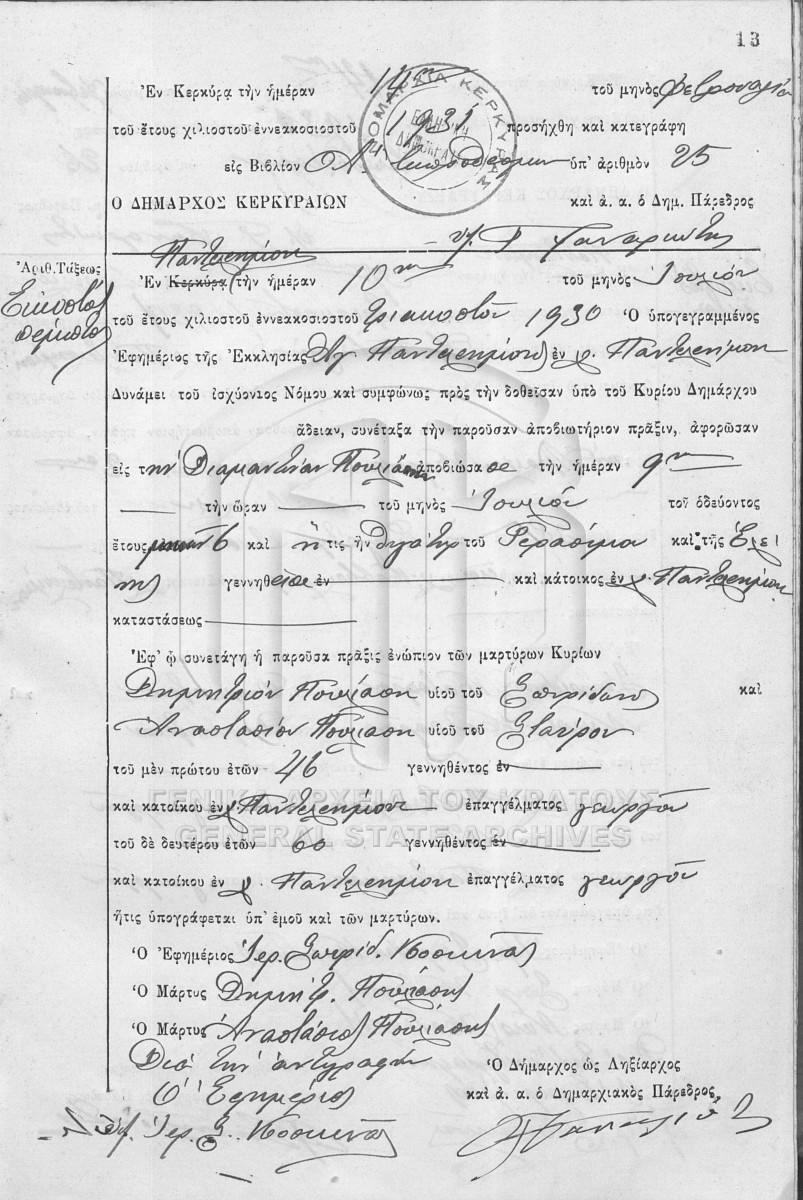 13
Ἐν Κερκύρᾳ τὴν ἡμέραν 14ην τοῦ μηνὸς Φεβρουαρίου
τοῦ ἔτους χιλιοστοῦ ἐννεακοσιοστοῦ 1931 προσήχθη καὶ κατεγράφη
εἰς Βιβλίον ὑπ' ἀριθμὸν 25
Ο ΔΗΜΑΡΧΟΣ ΚΕΡΚΥΡΑΙΩΝ καὶ ἀ. α. ὁ Δημ. Πάρεδρος
Παντελεήμονι
Ἀριθ. Τάξεως
Εἰκοστὸς πέμπτος
Ἐν Κερκύρᾳ τὴν ἡμέραν 10ην τοῦ μηνὸς Ἰουλίου
τοῦ ἔτους χιλιοστοῦ ἐννεακοσιοστοῦ τριακοστοῦ 1930 Ὁ ὑπογεγραμμένος
Ἐφημέριος τῆς Ἐκκλησίας Ἁγ Παντελεήμονος ἐν χ. Παντελεήμονι
Δυνάμει τοῦ ἰσχύοντος Νόμου καὶ συμφώνως πρὸς τὴν δοθεῖσαν ὑπὸ τοῦ Κυρίου Δημάρχου
ἄδειαν, συνέταξα τὴν παροῦσαν ἀποβιωτήριον πρᾶξιν, ἀφορῶσαν
εἰς τὴν Διαμαντίναν Πουλιάση ἀποβιώσασα τὴν ἡμέραν 9ην
τὴν ὥραν τοῦ μηνὸς Ἰουλίου τοῦ ὁδεύοντος
ἔτους μηνῶν 6 καὶ ἥτις ἦν θυγάτηρ τοῦ Γερασίμου καὶ τῆς Ἑλέ
νης γεννηθεῖσα ἐν καὶ κάτοικος ἐν χ. Παντελεήμονι
καταστάσεως
Ἐφ' ᾧ συνετάγη ἡ παροῦσα πρᾶξις ἐνώπιον τῶν μαρτύρων Κυρίων
Δημητρίου Πουλιάση υἱοῦ τοῦ Σπυρίδωνος καὶ
Ἀναστασίου Πουλιάση υἱοῦ τοῦ Σταύρου
τοῦ μὲν πρώτου ἐτῶν 46 γεννηθέντος ἐν
καὶ κατοίκου ἐν χ. Παντελεήμονι ἐπαγγέλματος γεωργοῦ
ΓΕΝΙΚΑ ΑΡΧΕΙΑ ΤΟΥ ΚΡΑΤΟΥΣ
GENERAL STATE ARCHIVES
τοῦ δὲ δευτέρου ἐτῶν 60 γεννηθέντος ἐν
καὶ κατοίκου ἐν χ. Παντελεήμονι ἐπαγγέλματος γεωργοῦ
ἥτις ὑπογράφεται ὑπ' ἐμοῦ καὶ τῶν μαρτύρων.
Ὁ Ἐφημέριος Ἱερ. Σπυρίδ. Κοσκινᾶς
Ὁ Μάρτυς Δημήτρ. Πουλιάσης
Ὁ Μάρτυς Ἀναστάσιος Πουλιάσης
Διὰ τὴν ἀντιγραφὴν
Ὁ Ἐφημέριος
Ἱερ. Σ. Κοσκινᾶς
Ὁ Δήμαρχος ὡς Ληξίαρχος
καὶ ἀ. α. ὁ Δημαρχιακὸς Πάρεδρος